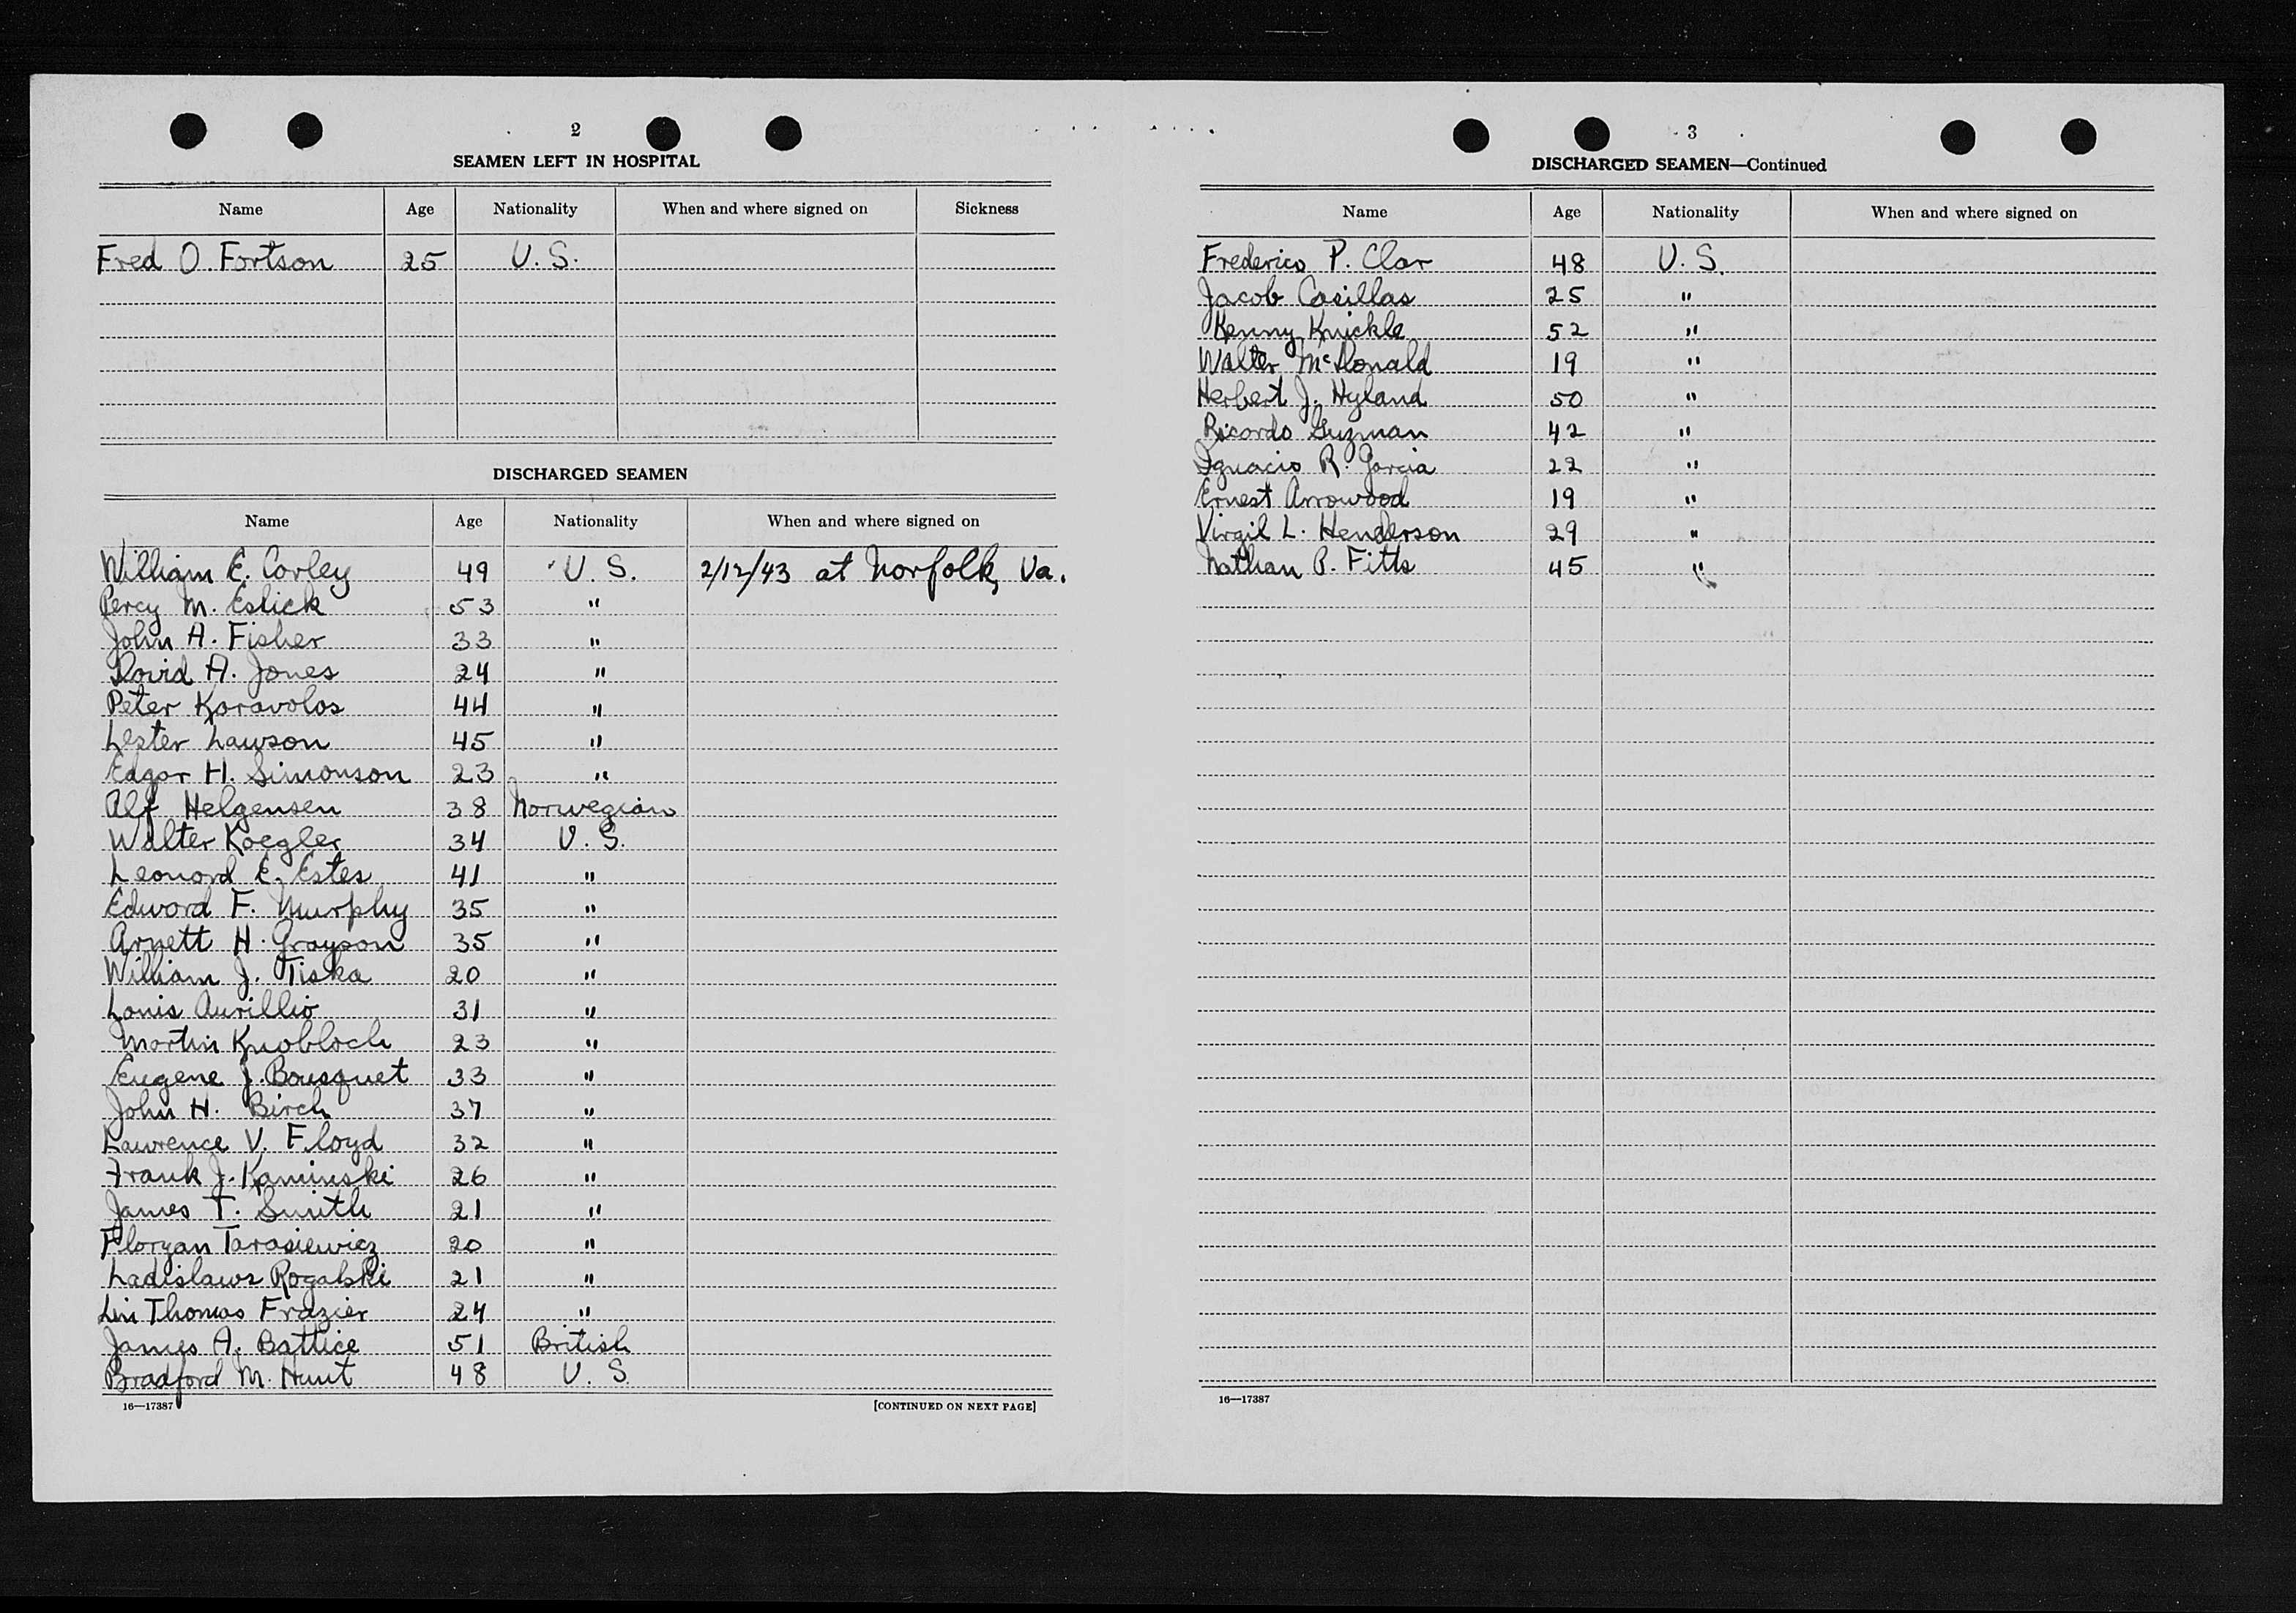 2
SEAMEN LEFT IN HOSPITAL
Name Age Nationality When and where signed on Sickness
Fred O. Fortson 25 U. S.
DISCHARGED SEAMEN
Name Age Nationality When and where signed on
William E. Corley 49 U. S. 2/12/43 at Norfolk, Va.
Percy M. Eslick 53 "
John A. Fisher 33 "
David A. Jones 24 "
Peter Karavolos 44 "
Lester Lawson 45 "
Edgar H. Simonson 23 "
Alf Helgensen 38 Norwegian
Walter Koegler 34 U. S.
Leonard E. Estes 41 "
Edward F. Murphy 35 "
Arnett H. Grayson 35 "
William J. Tiska 20 "
Louis Aurillio 31 "
Martin Knobloch 23 "
Eugene J. Bousquet 33 "
John H. Birch 37 "
Lawrence V. Floyd 32 "
Frank J. Kaminski 26 "
James T. Smith 21 "
Floryan Tarasiewicz 20 "
Ladislaws Rogalski 21 "
Thomas Frazier 24 "
James A. Battice 51 British
Bradford M. Hunt 48 U. S.
16—17387 [CONTINUED ON NEXT PAGE]
3
DISCHARGED SEAMEN—Continued
Name Age Nationality When and where signed on
Frederico P. Clar 48 U. S.
Jacob Casillas 25 "
Kenny Knickle 52 "
Walter McDonald 19 "
Herbert J. Hyland 50 "
Ricardo Guzman 42 "
Ignacio R. Garcia 22 "
Ernest Arrowood 19 "
Virgil L. Henderson 29 "
Nathan P. Fitts 45 "
16—17387